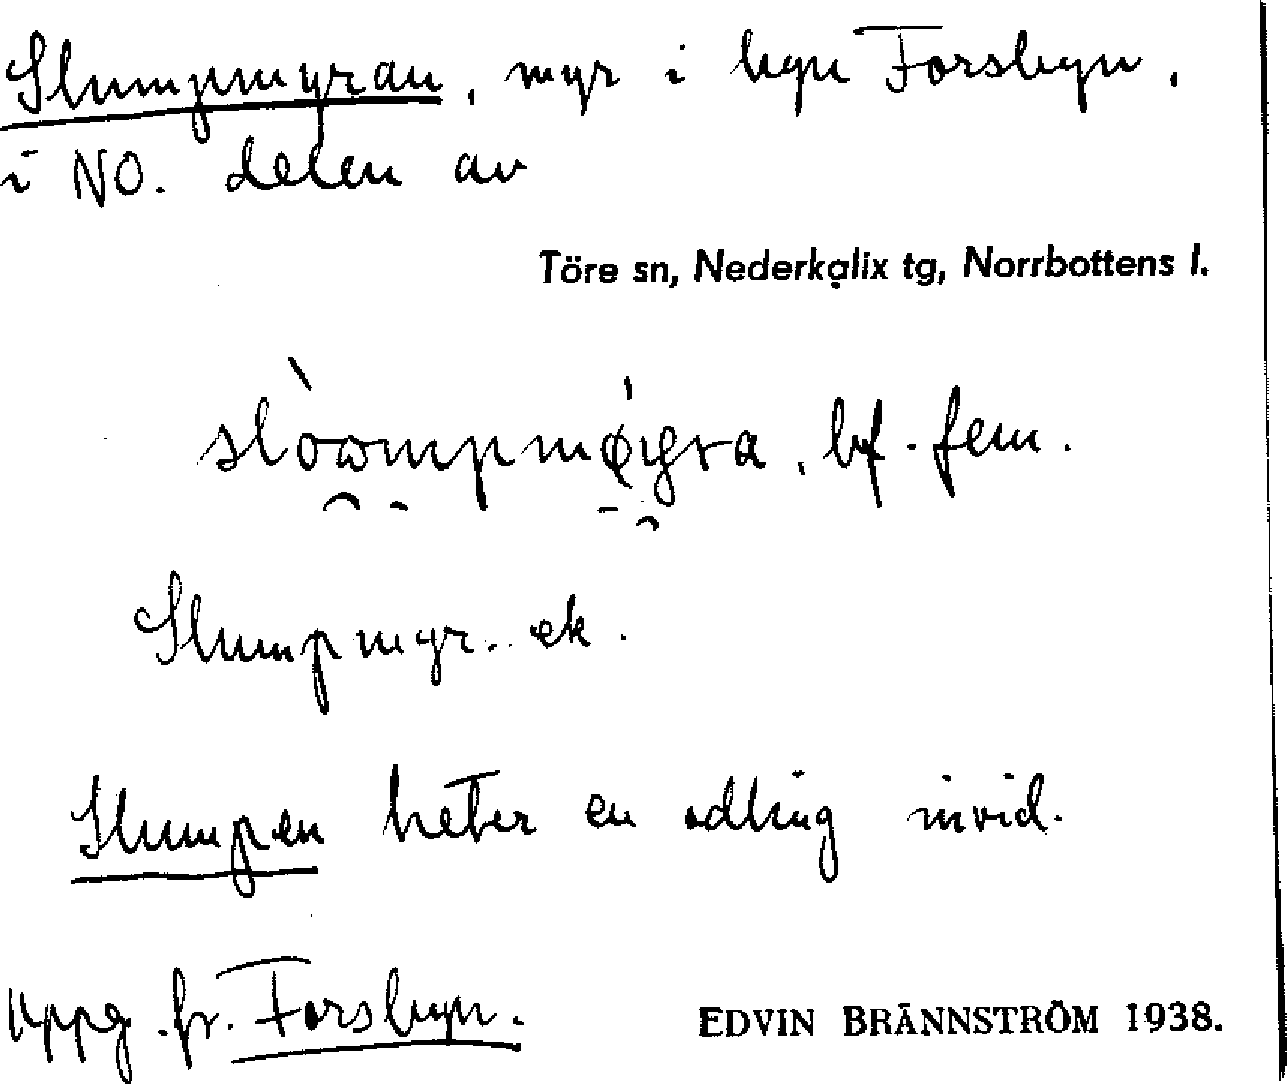 Slumpmyran, myr i byn Forsbyn,
i NO. delen av
Töre sn, Nederkalix tg, Norrbottens l.
bf. fem.
Slumpmyr.. ek.
Slumpen heter en odling invid.
Uppg. fr. Forsbyn.
EDVIN BRÄNNSTRÖM 1938.